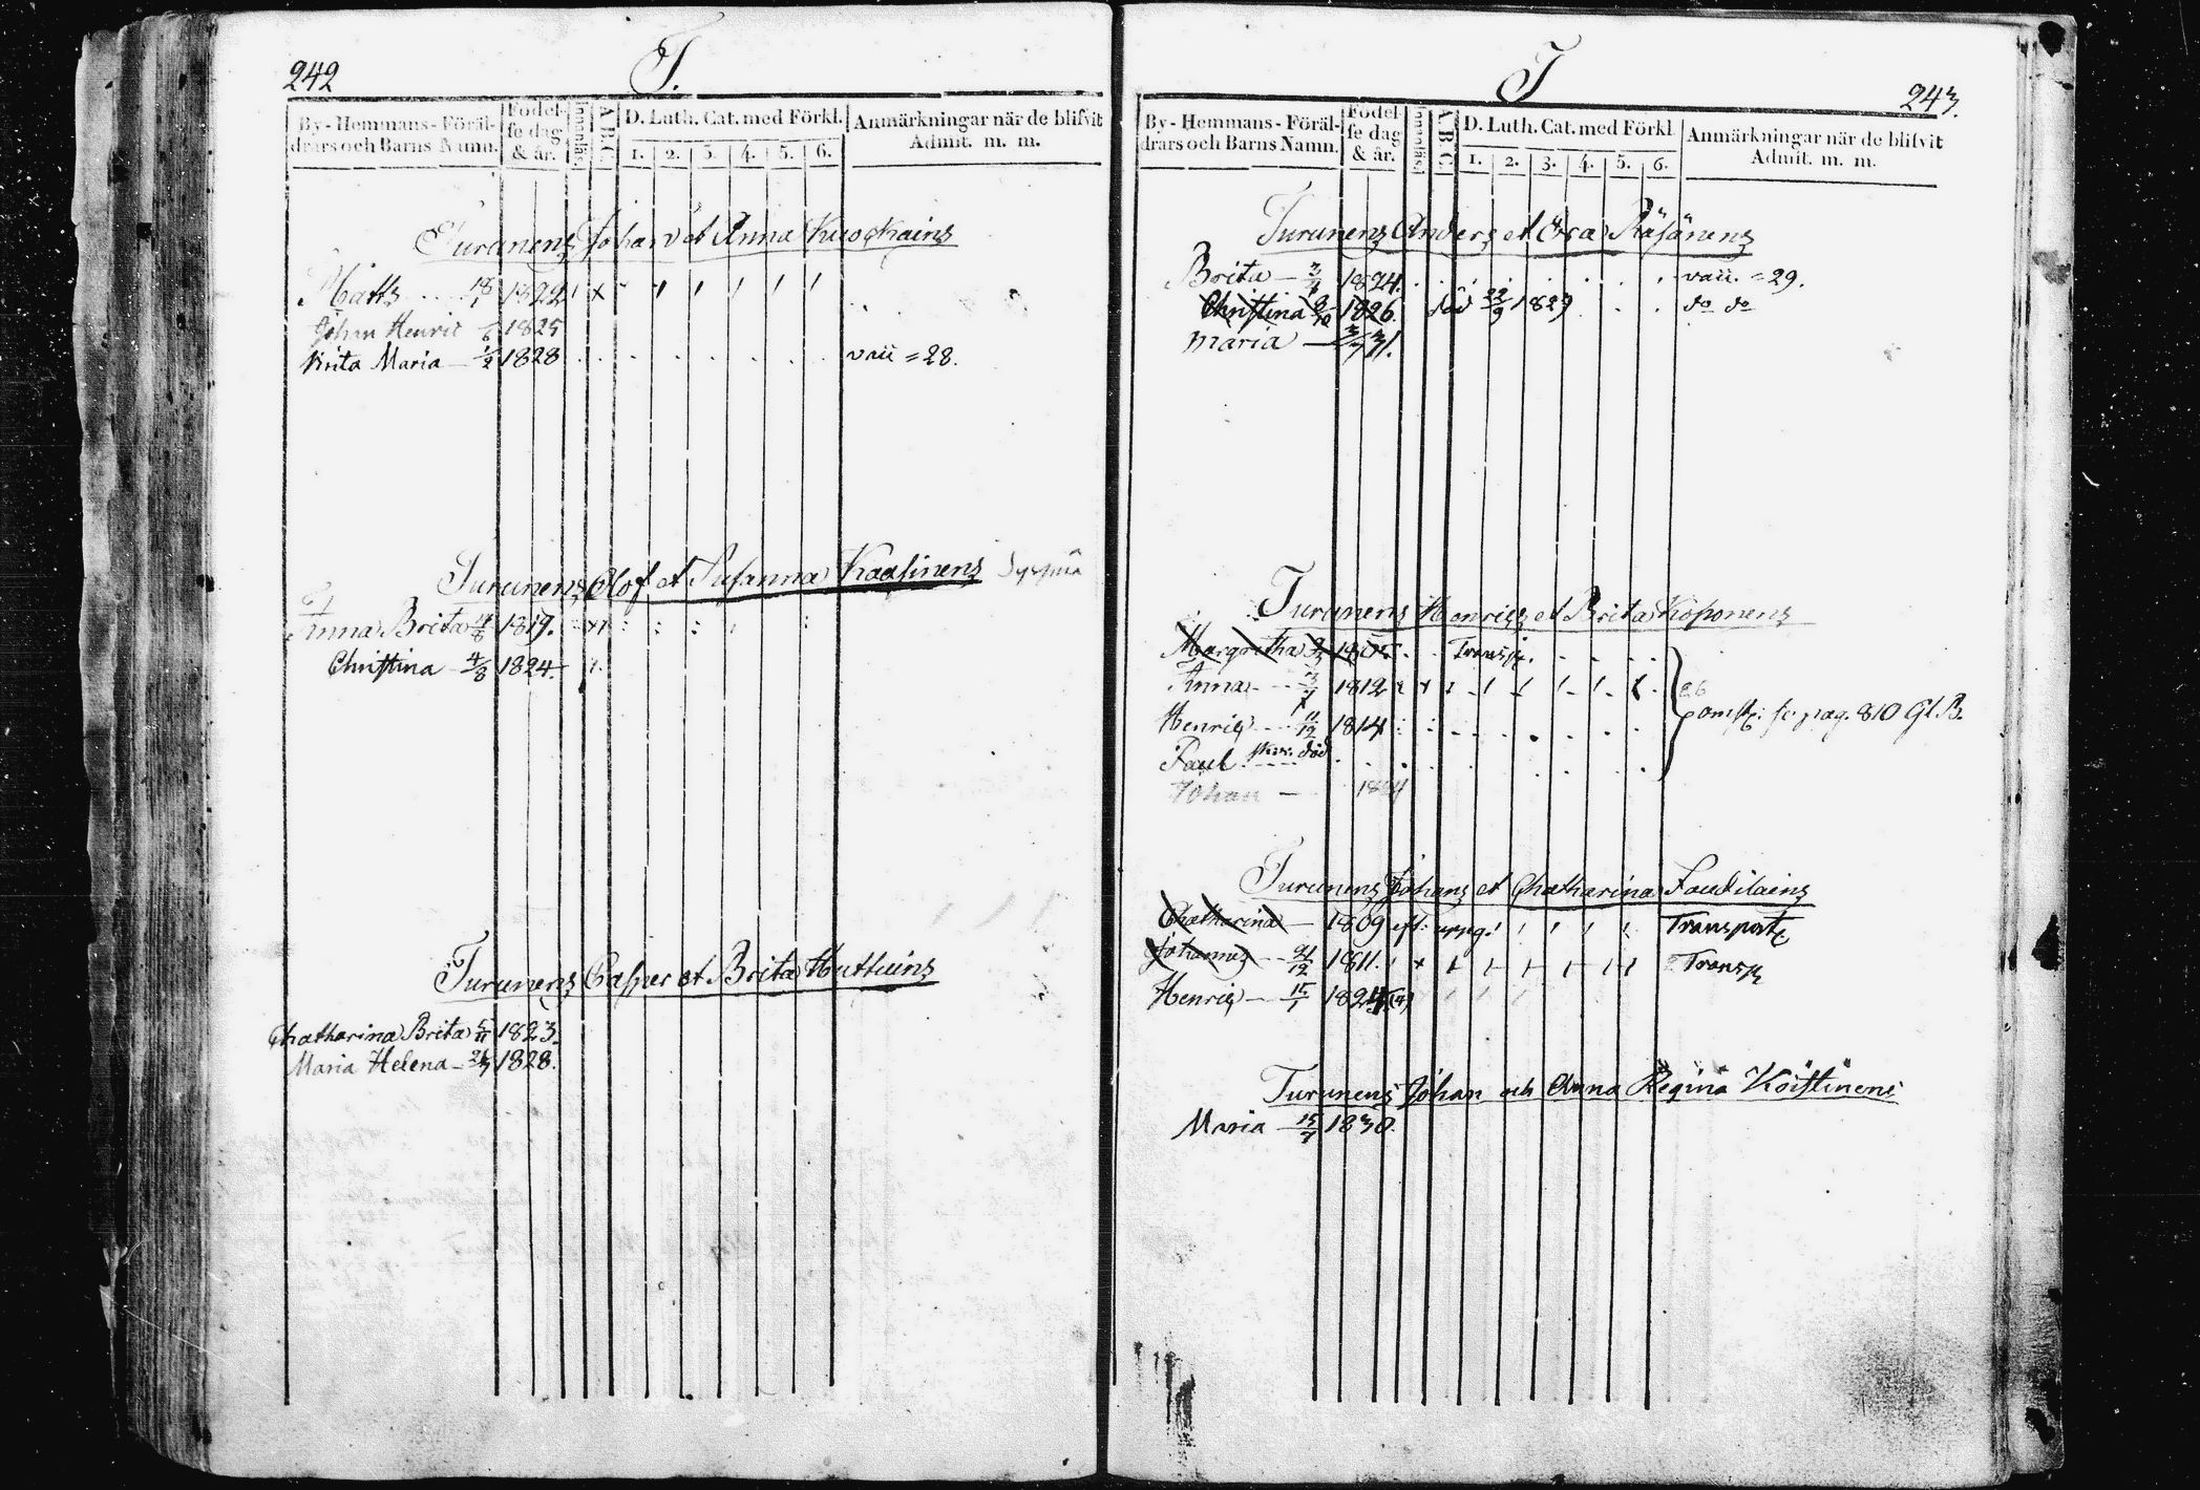 242
T.
By-Hemmans-Föräldrars och Barns Namn.
Födelse dag & år.
Innanläs.
A B C
D. Luth. Cat. med Förkl.
1. 2. 3. 4. 5. 6.
Anmärkningar när de blifvit Admit. m. m.
Turunens Johan et Anna Kuockains
Matts 18/1 1822
Johan Henric 1825
Brita Maria 1/2 1828 vacc = 28.
Turunens Olof et Susanna Kaasinens
Anna Brita 1819.
Christina 4/8 1824.
Turunens Casper et Brita Huttuins
Chatharina Brita 5/11 1823.
Maria Helena 1828.
T
243.
By-Hemmans-Föräldrars och Barns Namn.
Födelse dag & år.
Innanläs.
A B C
D. Luth. Cat. med Förkl.
1. 2. 3. 4. 5. 6.
Anmärkningar när de blifvit Admit. m. m.
Turunens Anders et Eva Räsänens
Brita 1824. vacc. = 29.
Christina 9/10 1826. död 22/9 1829 do do
Maria 31.
Turunens Henrics et Brita Koponens
Margretha 1805. Transp.
Anna 1812
Henric 11/12 1814 pag. 810 Gl. B.
Paul död
Johan
Turunens Johans et Chatharina Laukkains
Chatharina 1809 Transport
Johannes 21/12 1811. Transp
Henric 15/1 1824
Turunens Johan och Anna Regina Koistinens
Maria 15/7 1830.